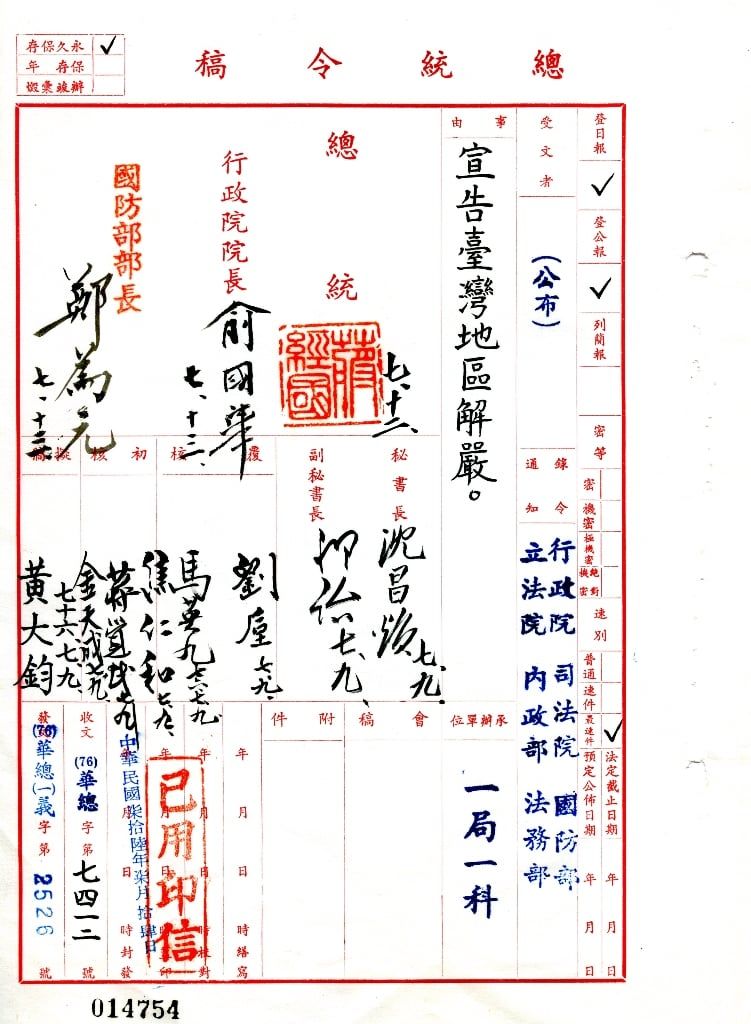 總統令稿
永久保存 ✓
保存 年
辦竣彙燬
登日報 ✓
登公報 ✓
列簡報
密等
密
機密
極機密
絕對機密
速別
普通
速件
最速件 ✓
法定截止日期 年 月 日
預定公佈日期 年 月 日
受文者
(公布)
錄令通知
行政院 司法院 國防部
立法院 內政部 法務部
事由
宣告臺灣地區解嚴。
承辦單位
一局一科
會稿
附件
總統
蔣經國
七、十二、
行政院院長
俞國華
七、十三、
國防部部長
鄭為元
七、十三、
秘書長
沈昌煥
七、九、
副秘書長
七、九、
覆核
劉垕
七、九、
馬英九
焦仁和
初核
擬稿
金天成
黃大鈞
年 月 日 時繕寫
年 月 日 時校對
年 月 日 時蓋印
中華民國柒拾陸年柒月拾肆日
年 月 日 時封發
已用印信
收文 (76)華總 字第 七四一二 號
發文 (76)華總(一)義 字第 2526 號
014754